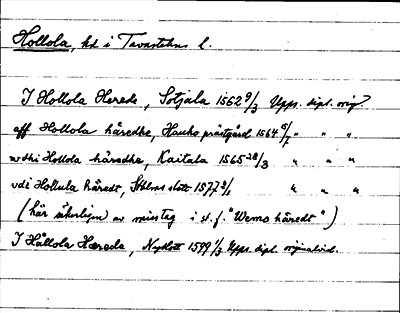 Hollola, hd i Tavastehus l.
I Hollola Herede, Sotjala 1562 9/3 Upps. dipl. orig.
aff Hollola häredhe, Hauho prästgård 1564 5/7 " " "
wthi Hollola häredhe, Kaitala 1565 28/3 " " "
vdi Hollula häredt, Sthlms slott 1577 " " "
(här säkerligen av misstag i st. f. "Wemo häredt")
I Hållola Hærede, Nyslott 1599 1/3 Upps. dipl. originalred.